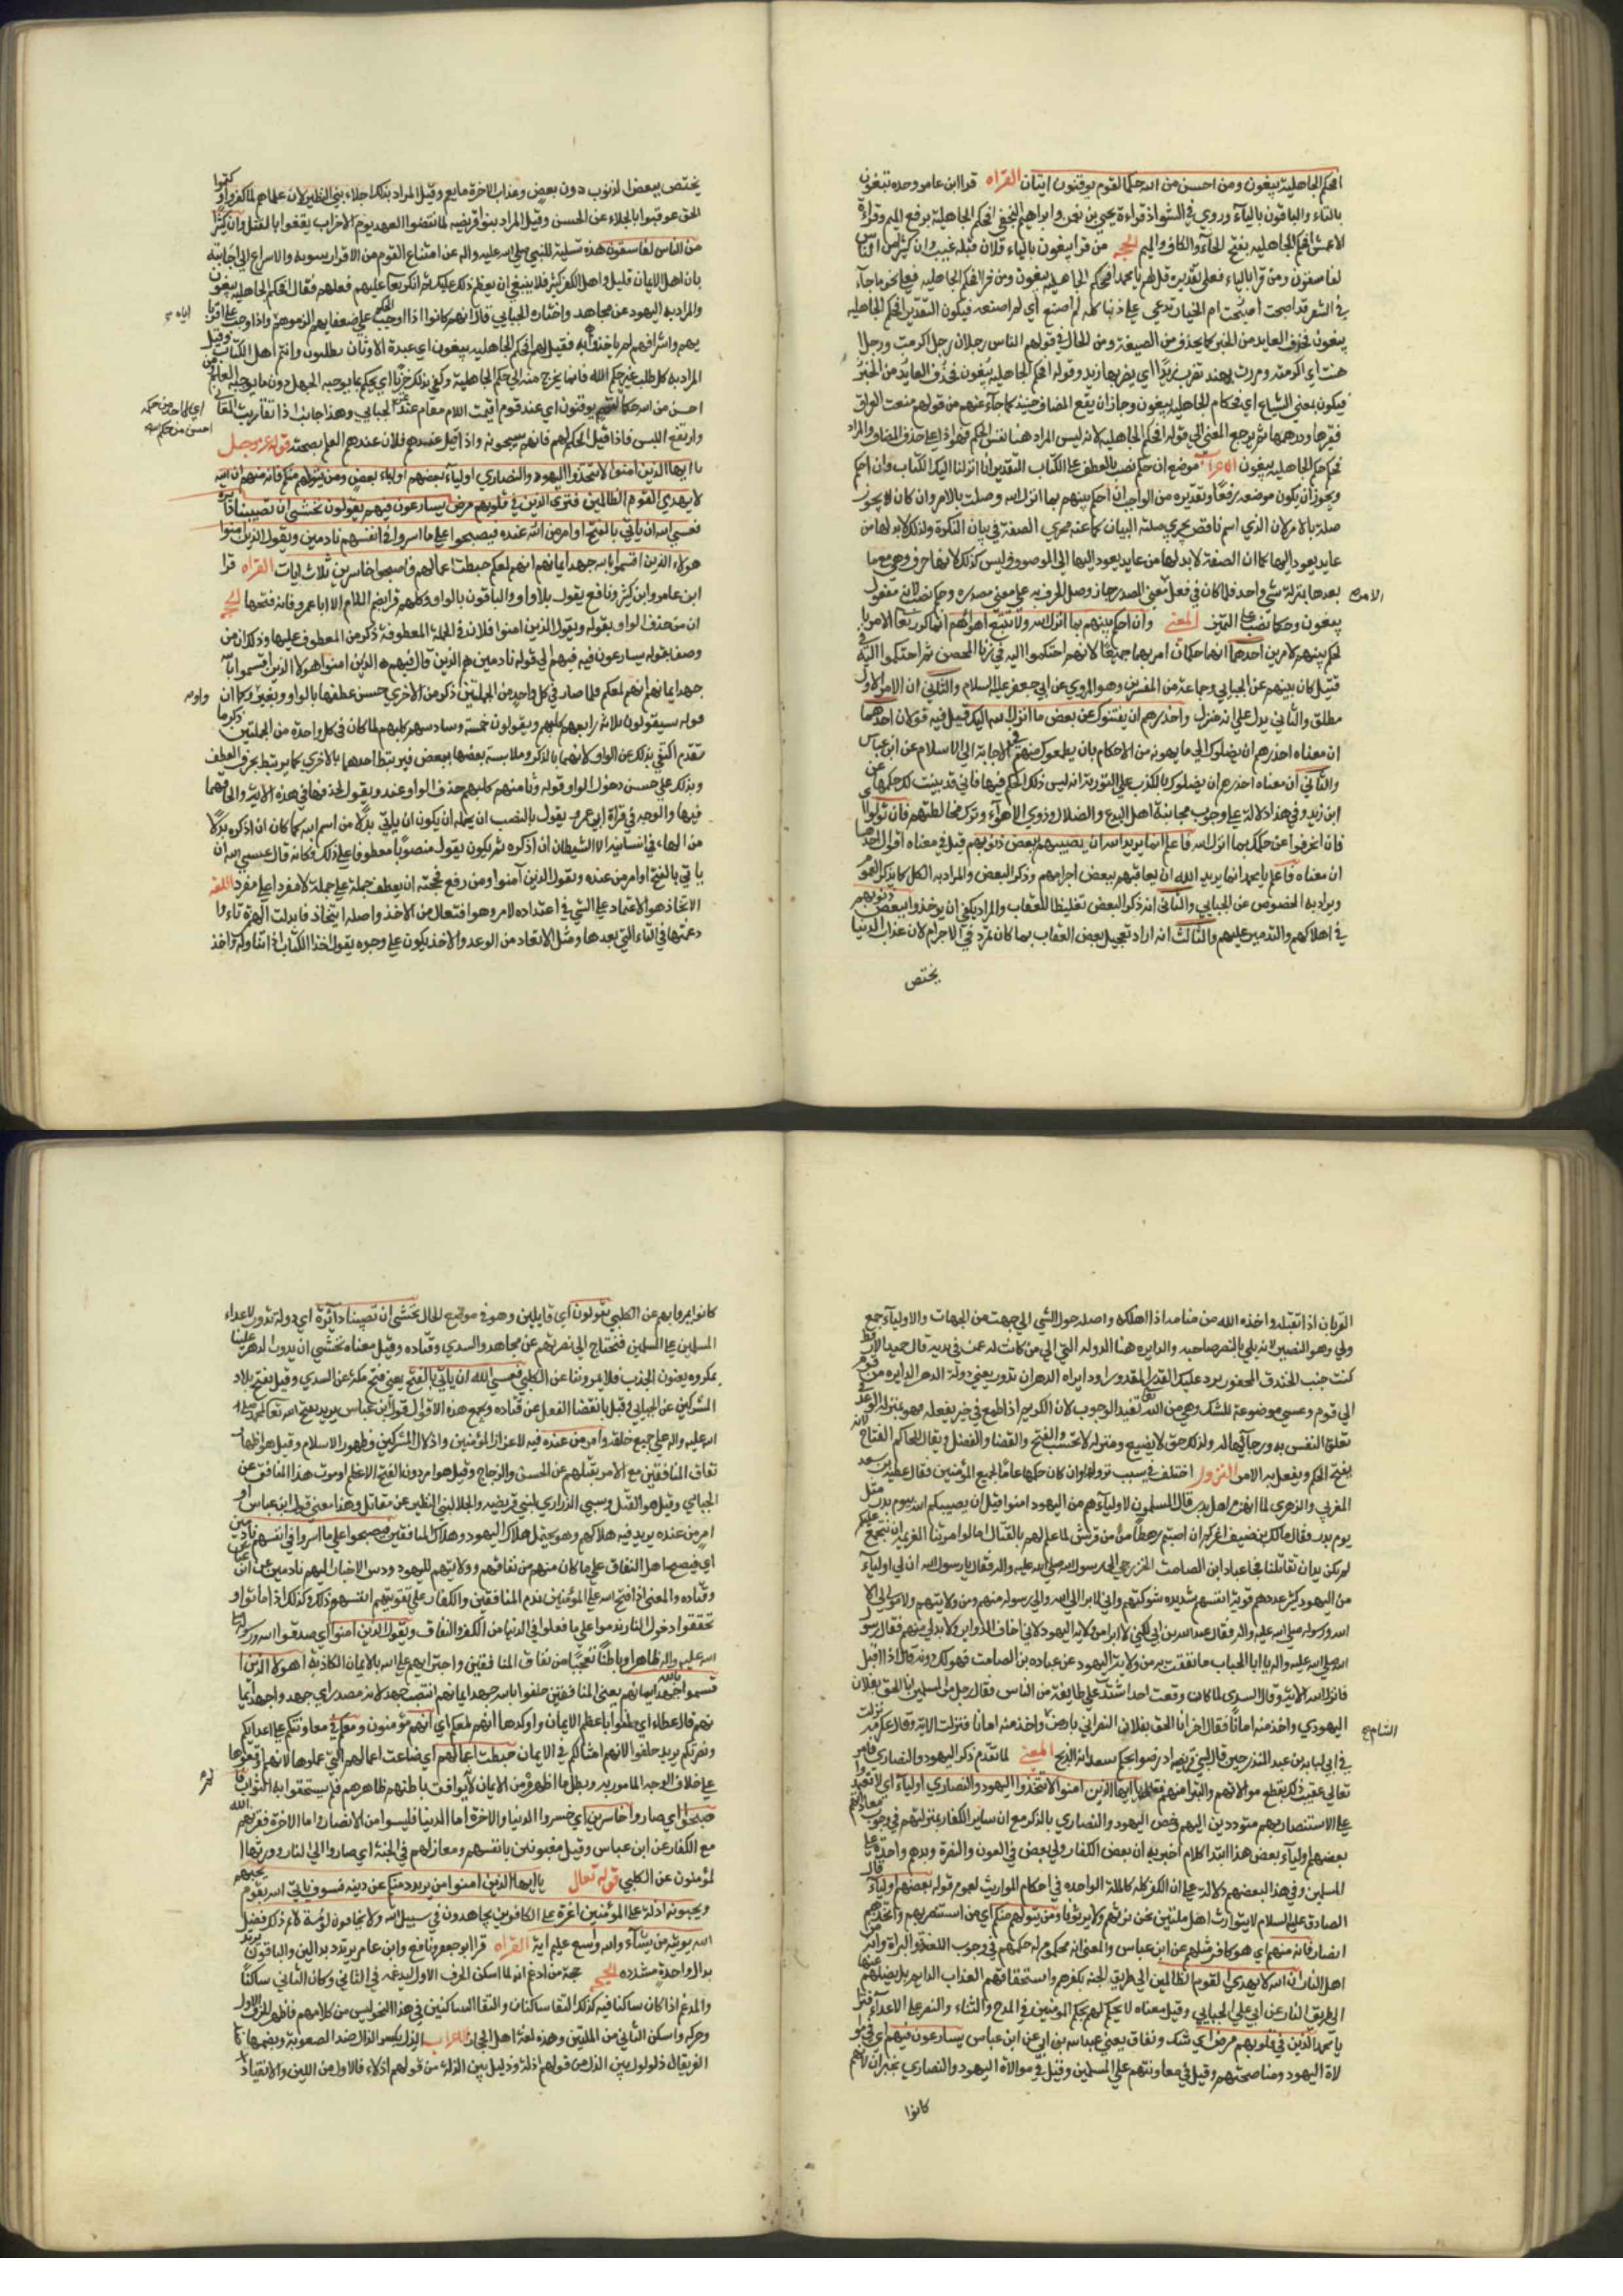 افحكم الجاهلية يبغون ومن احسن من الله حكما لقوم يوقنون ايتان القراه قرا ابن عامر وحده تبغون
بالتاء والباقون بالياء وروي في الشواذ قراءة يحيى بن وابراهيم النخعي افحكم الجاهلية برفع الميم وقراءة
الاعمش افحكم الجاهلية بفتح الحاء والكاف والميم الحجه من قرا يبغون بالياء فلان قبله غيبة وان كثيرا من الناس
لفاسقون ومن قرا بالتاء فعلى تقدير قل لهم يا محمد افحكم الجاهلية تبغون ومن قرا افحكم الجاهلية فعلى نحو ما جاء
في الشعر قد اصبحت ام الخيار تدعي علي ذنبا كله لم اصنع اي لم اصنعه فيكون التقدير افحكم الجاهلية
يبغونه فحذف العايد من الخبر كما يحذف من الصفة ومن الحال في قولهم الناس رجلان رجل اكرمت ورجل
اهنت اي اكرمته ومررت بهند تضرب زيدا اي يضربها زيد وقوله افحكم الجاهلية يبغون فحذف العايد من الخبر
فيكون بمعنى الشياع اي فحكام الجاهلية يبغون وجاز ان يقع المضاف جنسا كما جاء عنهم من قولهم منعت العراق
قفيزها ودرهمها ثم يرجع المعنى الى قوله افحكم الجاهلية لانه ليس المراد هنا نفس الحكم فهو اذا على حذف المضاف والمراد
افحكم حكم الجاهلية يبغون الاعراب موضع ان احكم نصب بالعطف على الكتاب التقدير انا انزلنا اليك الكتاب وان احكم
ويجوز ان يكون موضعه رفعا وتقديره من الواجب ان احكم بينهم بما انزل الله وصلت بالامر وان كان لا يجوز
صلة بالامر لان الذي اسم ناقص يجري صلته البيان عنه مجرى الصفة في بيان النكرة ولذلك لا بد لها من
عايد يعود اليها كما ان الصفة لا بد لها من عايد يعود الى الموصوف وليس كذلك لانها حرف وهي مع ما
بعدها بمنزلة شيء واحد فلما كان في فعل معنى المصدر جاز وصل الحرف به على معنى مصدره وحكم نصب لانه مفعول
الامر
يبغون وحكما نصب على التميز المعنى وان احكم بينهم بما انزل الله ولا تتبع اهواءهم انما كرر تعالى الامر با
لحكم بينهم لامرين احدهما انهما حكمان امر بهما جميعا لانهم احتكموا اليه في زنا المحصن ثم احتكموا اليه في
قتيل كان بينهم عن الجبايي وجماعة من المفسرين وهو المروي عن ابي جعفر عليه السلام والثاني ان الامر الاول
مطلق والثاني يدل على انه منزل واحذرهم ان يفتنوك عن بعض ما انزل الله اليك قيل فيه قولان احدهما
ان معناه احذرهم ان يضلوك الى ما يهوون من الاحكام بان يطمعوك منهم في الاجابة الى الاسلام عن ابن عباس
والثاني ان معناه احذرهم ان يضلوك بالكذب على التورية انه ليس ذلك الحكم فيها فاني قد بينت لك حكمها عن
ابن زيد وفي هذا دلالة على وجوب مجانبة اهل البدع والضلال وذوي الاهواء وترك مخالطتهم فان تولوا
فان انحرفوا عن حكمك بما انزل الله فاعلم انما يريد الله ان يصيبهم ببعض ذنوبهم قيل في معناه اقوال احدها
ان معناه فاعلم يا محمد انما يريد الله ان يعاقبهم ببعض اجرامهم وذكر البعض والمراد به الكل كما يذكر العموم
ويراد به الخصوص عن الجبايي والثاني انه ذكر البعض تغليظا للعقاب والمراد يكفي ان يوخذوا ببعض ذنوبهم
في اهلاكهم والتدمير عليهم والثالث انه اراد تعجيل بعض العقاب بما كان تمرد في الاجرام لان عذاب الدنيا
يختص
يختص ببعض الذنوب دون بعض وعذاب الاخرة ما يعم وقيل المراد بذلك اجلاء بني النظير لان علماهم لما كفروا وكتموا
الحق عوقبوا بالجلاء عن الحسن وقيل المراد بنو قريضه لما نقضوا العهد يوم الاحزاب بالقتل وان كثيرا
من الناس لفاسقون هذه تسلية للنبي صلى الله عليه واله عن امتناع القوم من الاقرار بنبوته والاسراع الى اجابته
بان اهل الايمان قليل واهل الكفر كثير فلا ينبغي ان يعظم ذلك عليك ثم انكر تعالى عليهم فعلهم فقال افحكم الجاهلية يبغون
والمراد به اليهود عن مجاهد واختاره الجبايي قال لانهم كانوا اذا وجب الحكم على ضعفايهم الزموهم واذا وجب على اقويا
اياه
يهم واشرافهم لم ياخذوا به فقيل لهم افحكم الجاهلية يبغون اي عبدة الاوثان تطلبون وانتم اهل الكتاب وقيل
المراد به كل من طلب غير حكم الله فانما يخرج منه الى حكم الجاهلية وكفى بذلك خزيا اي يحكم بما يوجبه الجهل دون ما يوجبه العلم ومن
احسن من الله حكما لقوم يوقنون اي عند قوم اقيمت اللام مقام عند عن الجبايي وهذا جايز اذا تقاربت المعاني
اي لا احد من حكمه
احسن من حكم الله
وارتفع اللبس فاذا قيل الحكم لهم فلانهم واذا قيل عندهم فلان عندهم العلم بصحته قوله عز وجل
يا ايها الذين امنوا لا تتخذوا اليهود والنصاري اولياء بعضهم اولياء بعض ومن يتولهم منكم فانه منهم ان الله
لا يهدي القوم الظالمين فترى الذين في قلوبهم مرض يسارعون فيهم يقولون نخشى ان تصيبنا دائرة
فعسى الله ان ياتي بالفتح او امر من عنده فيصبحوا على ما اسروا في انفسهم نادمين ويقول الذين امنوا
هولاء الذين اقسموا بالله جهد ايمانهم انهم لمعكم حبطت اعمالهم فاصبحوا خاسرين ثلاث ايات القراه قرا
ابن عامر وابن كثير ونافع يقول بلا واو والباقون بالواو وكلهم قرا بضم اللام الا ابا عمرو فانه فتحها الحجه
ان من حذف الواو بقوله ويقول الذين امنوا فلان في الجملة المعطوفة ذكر من المعطوف عليها وذلك ان من
وصف بقوله يسارعون فيه فيهم الى قوله نادمين هم الذين قال فيهم الذين امنوا اهولاء الذين اقسموا بالله
جهد ايمانهم انهم لمعكم فلما صار في كل واحد من الجملتين ذكر من الاخرى حسن عطفها بالواو وبغير واو كما ان
واو
قوله سيقولون ثلاثه رابعهم كلبهم ويقولون خمسة وسادسهم كلبهم لما كان في كل واحدة من الجملتين ذكر ما
تقدم اكتفي بذلك عن الواو لانهما بالذكر وملابسة بعضها ببعض فيرتبط احدهما بالاخرى كما يرتبط بحرف العطف
ويدلك على حسن دخول الواو قوله وثامنهم كلبهم حذف الواو عند ويقول كحذفها في هذه الاية والحاقهما
فيها والوجه في قراة ابي عمرو يقول بالنصب ان يحمله ان يكون ان ياتي بدلا من اسم الله كما كان ان اذكره بدلا
من الهاء في انسانيه الا الشيطان ان اذكره ثم يكون يقول منصوبا معطوفا على ذلك فكانه قال عسى الله ان
ياتي بالفتح او امر من عنده ويقول الذين آمنوا ومن رفع فحجته ان يعطف جملة على جملة لا مفردا على مفرد اللغه
الاتخاذ هو الاعتماد على الشيء في اعتداده لامر وهو افتعال من الاخذ واصله ايتخاذ فابدلت الهمزة تاء وا
دغمتها في التاء التي بعدها ومثل الاتعاد من الوعد والاخذ يكون على وجوه يقول اخذ الكتاب اذا تناوله واخذ
القربان اذا تقبله واخذه الله من منامه اذا اهلكه واصله جواز الشي الى جهة من الجهات والاولياء جمع
ولي وهو النصير لانه يلي بالنصر صاحبه والدايره هنا الدوله التي الي من كانت له عن في يديه قال حميد الارقط
كنت جنب الخندق المحفور يرد عليك القدر المقدور او دايراه الدهر ان تدور يعني دولة الدهر الدايره من قوم
الى قوم وعسى موضوعة للشك وهي من الله تعالى تفيد الوجوب لان الكريم اذا اطمع في خير يفعله فهو بمنزلة الوعد في
تعلق النفس به ورجائها له ولذلك حق لا يضيع ومنزله لا تحتسب والفتح والقضا والفصل ويقال للحاكم الفتاح لانه
يفتح الحكم ويفصل به الامر النزول اختلف في سبب نزولها وان كان حكمها عاما لجميع المؤمنين فقال عطيه بن سعد
والزهري لما انهزم اهل بدر قال المسلمون لاوليآءهم من اليهود امنوا قبل ان يصيبكم الله بيوم مثل
يوم بدر فقال مالك بن ضيف اغركم ان اصبتم رهطا من قريش لا علم لهم بالقتال اما لو امررنا العزيمه ان نجمع عليكم
لم يكن يدان تقاتلنا فجا عباده ابن الصامت الخزرجي الى رسول الله صلى الله عليه واله فقال يا رسول الله ان لي اولياء
من اليهود كثير عددهم قوية انفسهم شديده شوكتهم واني لابرا الى الله والى رسوله منهم ومن ولايتهم ولا مولى لي الا
الله ورسوله صلى الله عليه واله فقال عبد الله بن ابي لكني لا ابرا من ولاية اليهود لاني اخاف الدواير ولا بد لي منهم فقال رسول
الله صلى الله عليه واله يا ابا الحباب ما نفقت به من ولاية اليهود عن عباده بن الصامت فهو لك دونه قال اذا اقبل
فانزل الله الاية وقال السدي لما كان وقعت احد اشتدت على طايفة من الناس فقال رجل من المسلمين انا الحق بفلان
اليهودي واخذ منه امانا فقال اخر انا الحق بفلان النصراني بارض واخذ منه امانا فنزلت الاية وقال عكرمه نزلت
الشام
في ابي لبابه بن عبد المنذر حين قال لبني قريضه اذ رضوا بحكم سعد انه الذبح المعنى لما تقدم ذكر اليهود والنصارى فامر
تعالى عقيب ذلك بقطع موالاتهم والتبرا منهم فقال يا ايها الذين امنوا لا تتخذوا اليهود والنصاري اولياء اي لا تعتمدوا
على الاستنصار بهم متوددين اليهم وخص اليهود والنصارى بالذكر مع ان ساير الكفار بمنزلتهم في وجوب معاداتهم
بعضهم اولياء بعض هذا ابتدا كلام اخبر به ان بعض الكفار ولي بعض في العون والنصرة ويدهم واحدة على
المسلمين وفي هذا بعضهم دلالة على ان الكفر كله كالملة الواحده في احكام المواريث لعموم قوله بعضهم اولياء قال
الصادق عليه السلام لا يتوارث اهل ملتين نحن نرثهم ولا يرثونا ومن يتولهم منكم اي من استنصر بهم واتخذهم
انصار فانه منهم اي هو كافر مثلهم عن ابن عباس والمعنى انه محكوم له حكمهم في وجوب اللعنة والبراة وانه من
اهل النار ان الله لا يهدي القوم الظالمين الى طريق الجنة بكفرهم واستحقاقهم العذاب الدايم بل يضلهم عنها
الى طريق النار عن ابي علي الجبايي وقيل معناه لا يحكم لهم بحكم المومنين في المدح والثناء والنصر على الاعداء فترى
يا محمد الذين في قلوبهم مرض اي شك ونفاق يعني عبد الله بن ابي عن ابن عباس يسارعون فيهم اي في موا
لاة اليهود ومناصحتهم وقيل في معاونتهم على المسلمين وقيل في موالاة اليهود والنصارى نجران لانهم
كانوا
كانوا يميرونهم عن الكلبي يقولون اي قايلين وهو في موضع الحال نخشى ان تصيبنا دائرة اي دولة تدور لاعداء
المسلمين على المسلمين فنحتاج الى نصرتهم عن مجاهد والسدي وقتاده وقيل معناه نخشى ان يدور الدهر علينا
بمكروه يعنون الجدب فلا يميروننا عن الكلبي فعسى الله ان ياتي بالفتح يعني فتح مكة عن السدي وقيل بفتح بلاد
المشركين عن الجبايي وقيل بانقضا الفصل عن قتاده ويجمع هذه الاقوال قول ابن عباس يريد بفتح الله تعالى لمحمد صلى
الله عليه واله على جميع خلقه او امر من عنده فيه لاعزاز المؤمنين واذلال المشركين وظهور الاسلام وقيل هو اظهار
نفاق المنافقين مع الامر بقتلهم عن الحسن والزجاج وقيل هو امر دون الفتح الاعظم او موت هذا المنافق عن
الجبايي وقيل هو القتل وسبي الذراري لبني قريضه والجلا لبني النظير عن مقاتل وهذا معنى قول ابن عباس او
امر من عنده يريد فيه هلاكهم وهو يحتمل هلاك اليهود وهلاك المنافقين فيصبحوا على ما اسروا في انفسهم نادمين
اي فيصبح اهل النفاق على ما كان منهم من نفاقهم وولايتهم لليهود ودس الاخبار اليهم نادمين عن ابن عباس
وقتاده والمعنى اذا فتح الله على المؤمنين ندم المنافقين والكفار على تفويتهم انفسهم ذلك وكذلك اذا ماتوا و
تحققوا دخول النار ندموا على ما فعلوا في الدنيا من الكفر والنفاق ويقول الذين آمنوا اي صدقوا الله ورسوله صلى
الله عليه واله ظاهرا وباطنا تعجبا من نفاق المنافقين واجترايهم على الله بالايمان الكاذبة اهولاء الذين ا
قسموا بالله جهد ايمانهم يعني المنافقين حلفوا بالله جهد ايمانهم انتصب جهد لانه مصدر اي جهدوا جهد ايما
نهم قال عطاء اي حلفوا باعظم الايمان واوكدها انهم لمعكم اي انهم مؤمنون ومعكم في معاونتكم على اعدايكم
ونصرتكم يريد حلفوا لانهم امثالكم في الايمان حبطت اعمالهم اي ضاعت اعمالهم التي عملوها لانهم اوقعوها
على خلاف الوجه المامور به وبطل ما اظهروه من الايمان لانه لم يوافق باطنهم ظاهرهم فلم يستحقوا به الثواب فا
صبحوا اي صاروا خاسرين اي خسروا الدنيا والاخرة اما الدنيا فليسوا من الانصار واما الاخرة فقرنهم الله
مع الكفار عن ابن عباس وقيل مغبونين بانفسهم ومنازلهم في الجنة اي صاروا الى النار وورثها ا
لمؤمنون عن الكلبي قوله تعال يا ايها الذين امنوا من يرتدد منكم عن دينه فسوف ياتي الله بقوم يحبهم
ويحبونه اذلة على المؤمنين اعزة على الكافرين يجاهدون في سبيل الله ولا يخافون لومة لائم ذلك فضل
الله يوتيه من يشآء والله واسع عليم اية القراه قرا ابو جعفر ونافع وابن عامر يرتدد بدالين والباقون يرتد
بدال واحدة مشدده الحجه حجة من ادغم انه لما اسكن الحرف الاول ليدغمه في الثاني وكان الثاني ساكنا
والمدغم اذا كان ساكنا فيه كذلك التقا ساكنان والتقا الساكنين في هذا النحو ليس من كلامهم فاظهر الحرف الاول
وحركه واسكن الثاني من المثلين وهذه لغة اهل الحجاز الاعراب الذل بكسر الذال ضد الصعوبة وبضمها ضد
العز يقال ذلول بين الذل من قولهم اذلة وذليل بين الذلة من قولهم اذلاء فالاول من اللين والانقياد